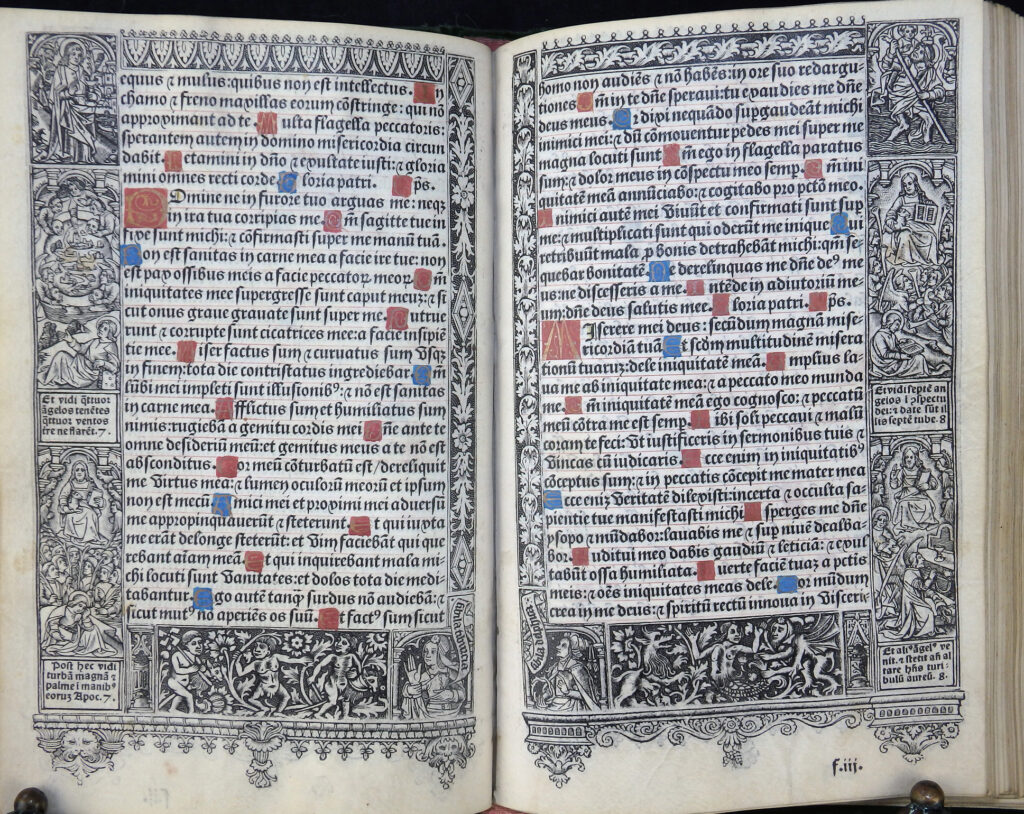 equus ⁊ mulus: quibus non est intellectus. In
chamo ⁊ freno maxillas eorum cõstringe: qui nõ
approximant ad te. Multa flagella peccatoris:
sperantem autem in domino misericordia circun
dabit. Letamini in dño ⁊ exultate iusti: ⁊ gloria
mini omnes recti corde. Gloria patri. ps.
Domine ne in furore tuo arguas me: neqʒ
in ira tua corripias me. Qm̃ sagitte tue in
fixe sunt michi: ⁊ cõfirmasti super me manũ tuã.
Non est sanitas in carne mea a facie ire tue: non
est pax ossibus meis a facie peccatoꝝ meoꝝ. Qm̃
iniquitates mee supergresse sunt caput meuʒ: ⁊ si
cut onus graue grauate sunt super me. Putrue
runt ⁊ corrupte sunt cicatrices mee: a facie insipiẽ
tie mee. Miser factus sum ⁊ curuatus sum vsqʒ
in finem: tota die contristatus ingrediebar. Qm̃
lũbi mei impleti sunt illusionibꝰ: ⁊ non est sanitas
in carne mea. Afflictus sum et humiliatus sum
nimis: rugiebã a gemitu cordis mei. Dñe ante te
omne desideriũ meũ: et gemitus meus a te nõ est
absconditus. Cor meũ cõturbatũ est / dereliquit
me virtus mea: ⁊ lumen oculorũ meorũ et ipsum
non est mecũ. Amici mei et proximi mei aduersũ
me appropinquauerũt ⁊ steterunt. Et qui iuxta
me erant de longe steterũt: et vim faciebãt qui que
rebant aĩam meã. Et qui inquirebant mala mi
chi locuti sunt vanitates: et dolos tota die medi
tabantur. Ego autẽ tanqʒ surdus nõ audiebã: ⁊
sicut mutꝰ nõ aperiẽs os suũ. Et factꝰ sum sicut
Et vidi q̃ttuor
ãgelos tenẽtes
q̃ttuor ventos
tre ne flarẽt. 7.
Post hec vidi
turbã magnã ⁊
palme i manibꝰ
eoruʒ Apoc. 7.
homo non audiẽs ⁊ nõ habẽs: in ore suo redargu-
tiones. Qm̃ in te dñe speraui: tu exaudies me dñe
deus meus. Quia dixi nequãdo supgaudeãt michi
inimici mei: ⁊ dũ cõmouentur pedes mei super me
magna locuti sunt. Qm̃ ego in flagella paratus
sum: ⁊ dolor meus in cõspectu meo semp. Qm̃ ini
quitatẽ meã annũciabo: ⁊ cogitabo pro pctõ meo.
Inimici autẽ mei viuũt et confirmati sunt sup
me: ⁊ multiplicati sunt qui oderũt me inique. Qui
retribuũt mala p bonis detrahebãt michi: qm̃ se-
quebar bonitatẽ. Ne derelinquas me dñe deꝰ me
us: ne discesseris a me. Intẽde in adiutoriũ me-
um: dñe deus salutis mee. Gloria patri. ps.
Miserere mei deus: secũdum magnã mise-
ricordiã tuã. Et scdm multitudinẽ misera
tionũ tuaruʒ: dele iniquitatẽ meã. Amplius la-
ua me ab iniquitate mea: ⁊ a peccato meo munda
me. Qm̃ iniquitatẽ meã ego cognosco: ⁊ peccatũ
meũ cõtra me est semp. Tibi soli peccaui ⁊ malũ
coram te feci: vt iustificeris in sermonibus tuis ⁊
vincas cũ iudicaris. Ecce enim in iniquitatibꝰ
cõceptus sum: ⁊ in peccatis cõcepit me mater mea
Ecce eniʒ veritatẽ dilexisti: incerta ⁊ occulta sa-
pientie tue manifestasti michi. Asperges me dñe
ysopo ⁊ mũdabor: lauabis me ⁊ sup niuẽ dealba-
bor. Auditui meo dabis gaudiũ ⁊ leticiã: ⁊ exul
tabũt ossa humiliata. Auerte faciẽ tuaʒ a pctis
meis: ⁊ oẽs iniquitates meas dele. Cor mũdum
crea in me deus: ⁊ spiritũ rectũ innoua in visceri
Et vidi septẽ ã
gelos ĩ cõspectu
dei: ⁊ date sũt il
lis septẽ tube. 8
Et aliꝰ ãgelꝰ ve
nit. ⁊ stetit ãñ al
tare hñs turi-
bulũ aureũ. 8.
f.iij.